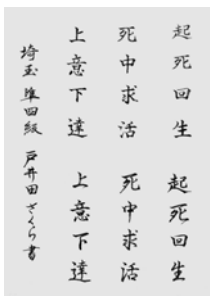 起死回生 起死回生
死中求活 死中求活
上意下達 上意下達
埼玉 準四級 戸井田さくら書